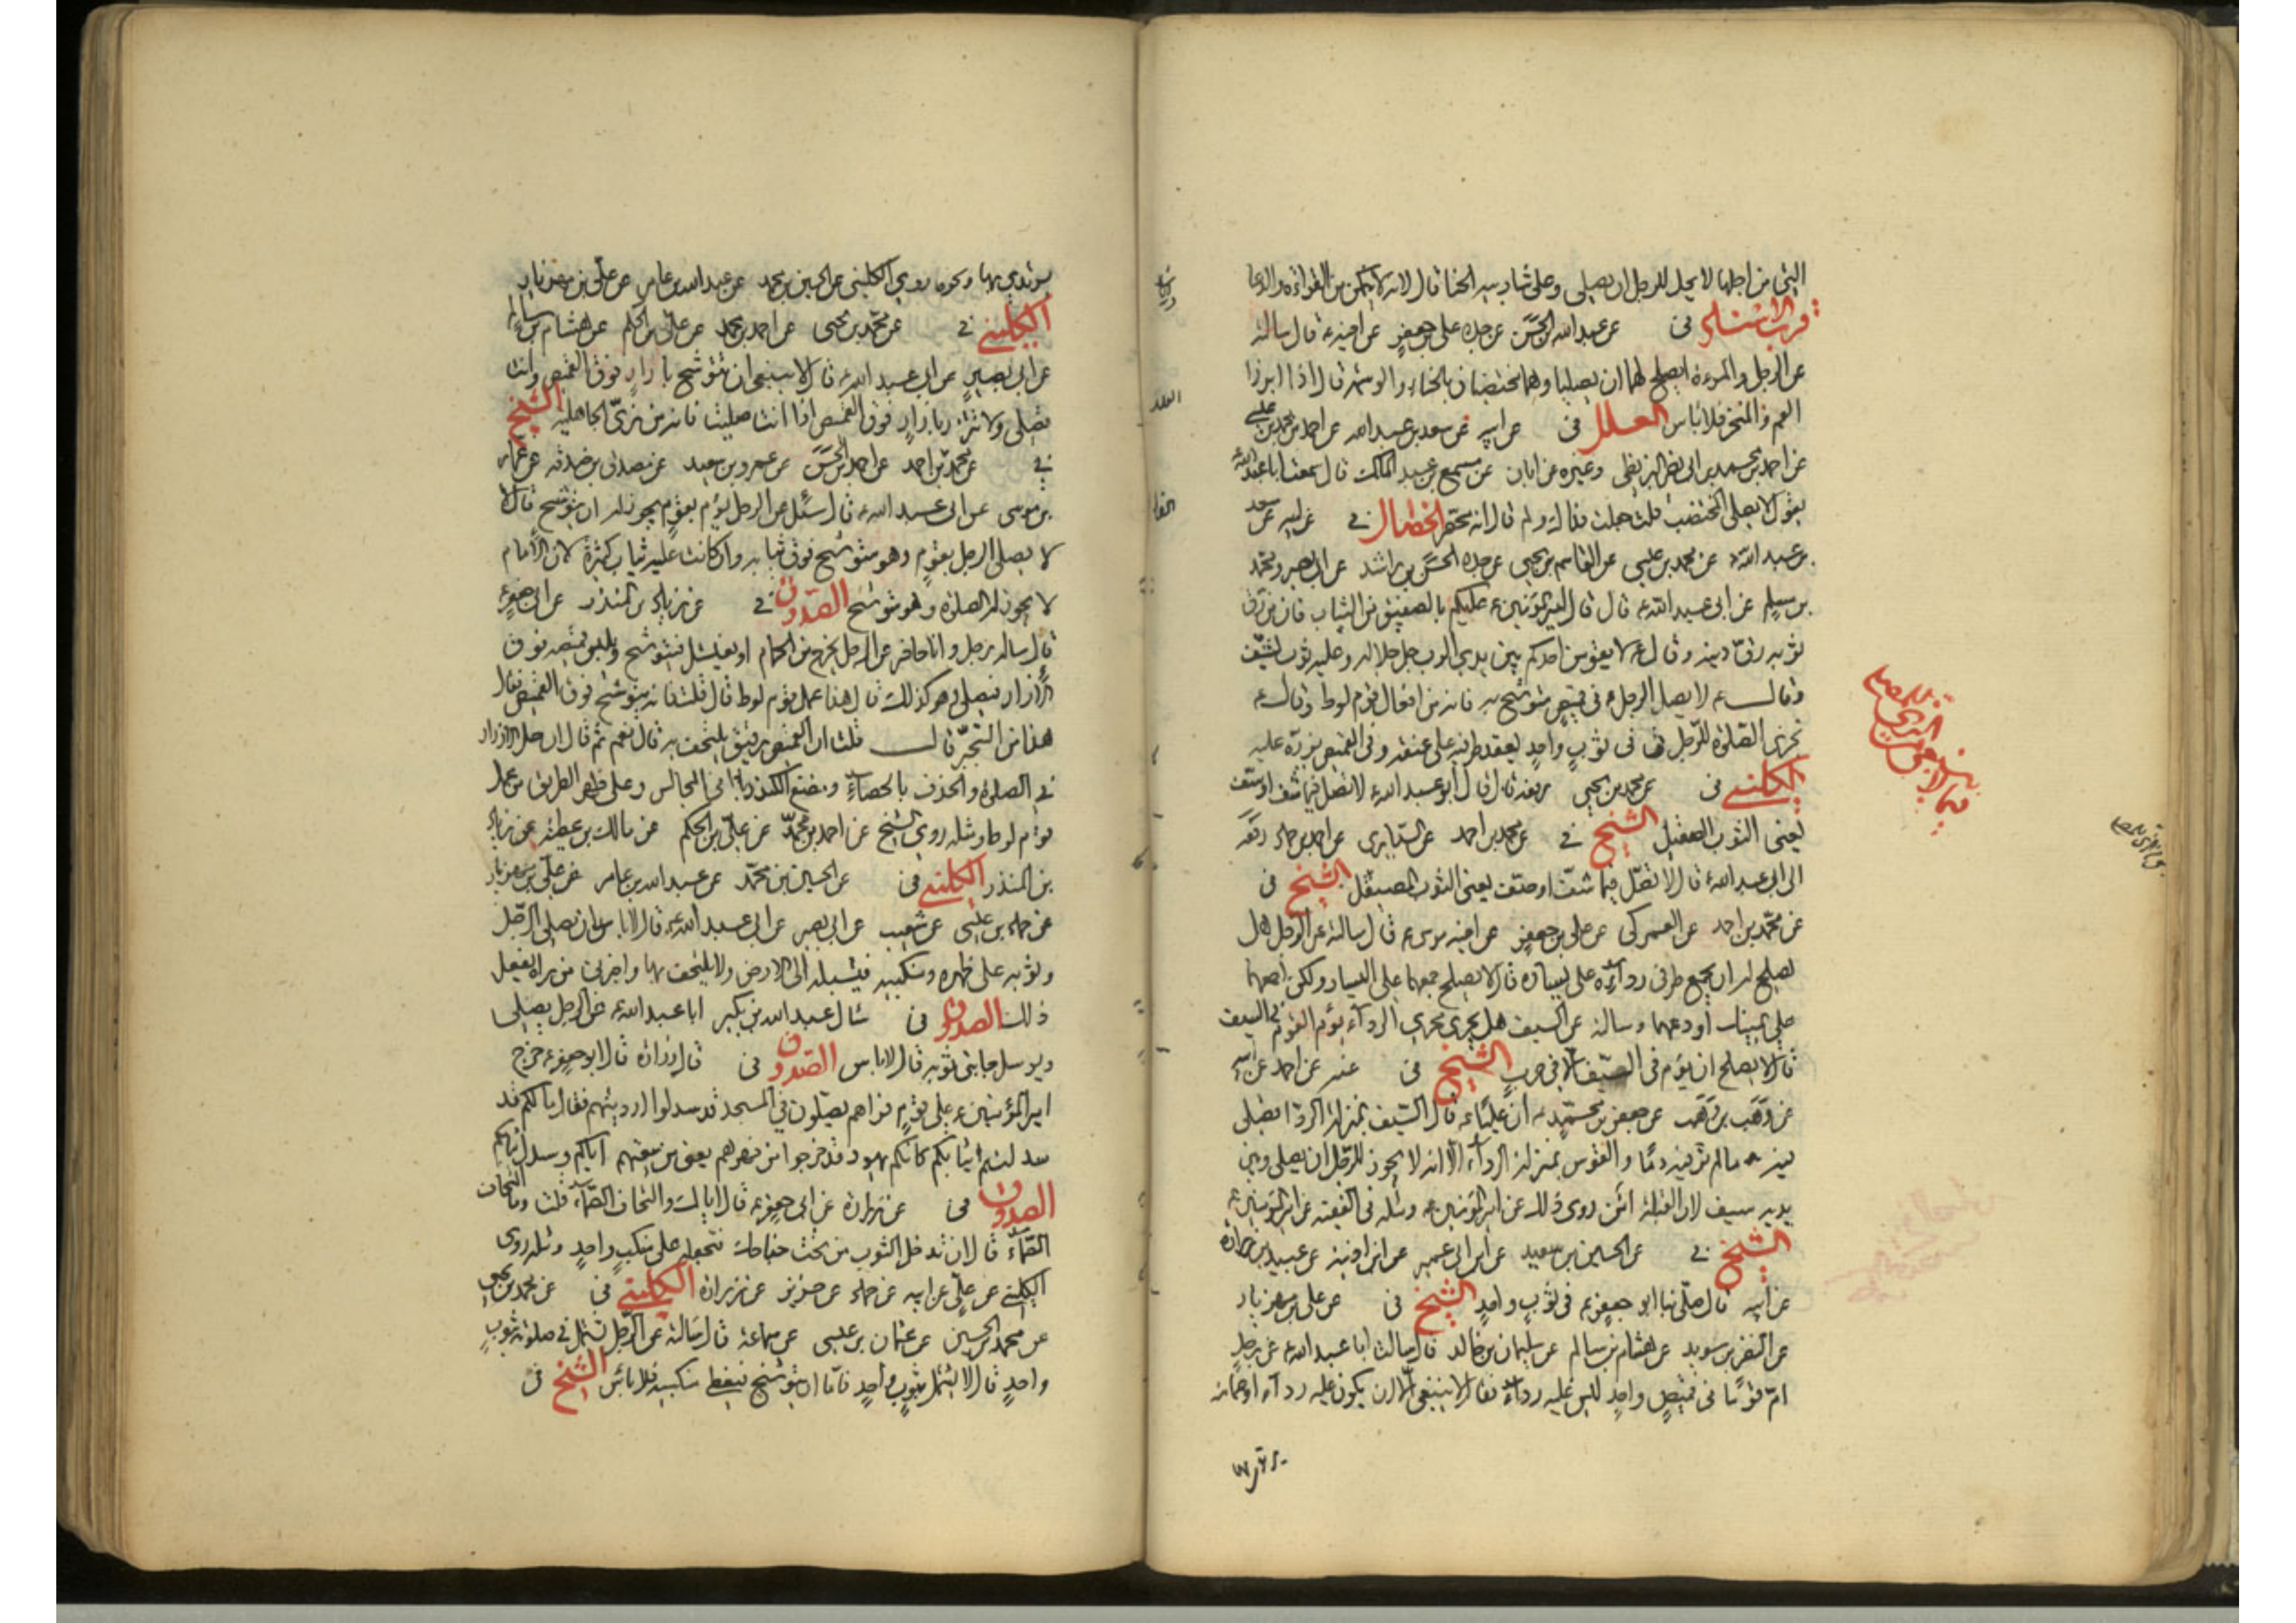 التي من اجلها لا يحل للرجل ان يصلى وعلى شاربيه الحنا قال لانه لا يتمكن من القراءة والدعا
قرب الاسناد فى عن عبد الله بن الحسن عن جده على بن جعفر عن اخيه ع قال سالته
عن الرجل والمرءة ايصلح لهما ان يصليا وهما مختضبان بالحناء والوسمة قال اذا ابرزا
الفم والمنخر فلا باس العلل فى عن ابيه عن سعد بن عبد الله عن احمد بن محمد بن عيسى
عن احمد بن محمد بن ابى نصر البزنطى وغيره عن ابان عن مسمع بن عبد الملك قال سمعت ابا عبد الله
يقول لا يصلى المختضب قلت جعلت فداك ولم قال انه محتصر الخصال فى عن ابيه عن سعد
بن عبد الله عن محمد بن عيسى عن القاسم بن يحيى عن جده الحسن بن راشد عن ابى بصير ومحمد
بن مسلم عن ابى عبد الله ع قال قال امير المؤمنين ع عليكم بالصفيق من الثياب فان من رق
ثوبه رق دينه وقال ع لا يقومن احدكم بين يدى الرب جل جلاله وعليه ثوب يشف
وقال ع لا يصلى الرجل فى قميص متوشحا به فانه من افعال قوم لوط وقال ع
تجزى الصلوة للرجل فى ثوب واحد يعقد طرفيه على عنقه وفى القميص يزره عليه
الكلينى فى عن محمد بن يحيى رفعه قال قال ابو عبد الله ع لا تصل فيما شف او سف
يعنى الثوب الصقيل الشيخ فى عن محمد بن احمد عن السيارى عن احمد بن حماد رفعه
الى ابى عبد الله ع قال لا تصل فيما شف او صف يعنى الثوب المصيقل الشيخ فى
عن محمد بن احمد عن العمركى عن على بن جعفر عن اخيه موسى ع قال سالته عن الرجل هل
يصلح له ان يجمع طرفى رداءه على يساره قال لا يصلح جمعهما على اليسار ولكن اجمعهما
على يمينك او دعهما وسالته عن السيف هل يجرى مجرى الرداء يؤم القوم فى السيف
قال لا يصلح ان يؤم فى السيف الا فى حرب الشيخ فى عنه عن احمد عن ابيه
عن وهب بن وهب عن جعفر بن محمد ان عليا ع قال السيف بمنزلة الرداء تصلى
فيه ما لم تر فيه دما والقوس بمنزلة الرداء الا انه لا يجوز للرجل ان يصلى وبين
يديه سيف لان القبلة امن روى ذلك عن امير المؤمنين ع ومثله فى الفقيه عن امير المؤمنين ع
الشيخ فى عن الحسين بن سعيد عن ابن ابى عمير عن ابن اذينة عن عبيد بن زرارة
عن ابيه قال صلى بنا ابو جعفر ع فى ثوب واحد الشيخ فى عن على بن مهزيار
عن النضر بن سويد عن هشام بن سالم عن سليمان بن خالد قال سالت ابا عبد الله ع عن رجل
ام قوما فى قميص واحد ليس عليه رداء فقال لا ينبغى الا ان يكون عليه رداء او عمامة
يرتدى بها ونحوه روى الكلينى عن الحسين بن محمد عن عبد الله بن عامر عن على بن مهزيار
الكلينى فى عن محمد بن يحيى عن احمد بن محمد عن على بن الحكم عن هشام بن سالم
عن ابى بصير عن ابى عبد الله ع قال لا ينبغى ان تتوشح بازار فوق القميص وانت
تصلى ولا تتزر بازار فوق القميص اذا انت صليت فانه من زى الجاهلية الشيخ
فى عن محمد بن احمد عن احمد بن الحسن عن عمرو بن سعيد عن مصدق بن صدقه عن عمار
بن موسى عن ابى عبد الله ع قال سئل عن الرجل يؤم بقوم يجوز له ان يتوشح قال لا
لا يصلى الرجل بقوم وهو متوشح فوق ثيابه وان كانت عليه ثياب كثيرة لان الامام
لا يجوز له الصلوة وهو متوشح الصدوق فى عن زياد بن المنذر عن ابى جعفر ع
قال ساله رجل وانا حاضر عن الرجل يخرج من الحمام او يغتسل فيتوشح ويلبس قميصه فوق
الازار فيصلى وهو كذلك قال هذا عمل قوم لوط قال قلت فانه يتوشح فوق القميص فقال
هذا من التجبر قال قلت ان القميص رقيق يلتحف به قال نعم ثم قال ان حل الازرار
فى الصلوة والخذف بالحصاء ومضغ الكندر فى المجالس وعلى ظهر الطريق من عمل
قوم لوط ومثله روى الشيخ عن احمد بن محمد عن على بن الحكم عن مالك بن عطيه عن زياد
بن المنذر الكلينى فى عن الحسين بن محمد عن عبد الله بن عامر عن على بن مهزيار
عن حماد بن عيسى عن شعيب عن ابى بصير عن ابى عبد الله ع قال لا باس ان يصلى الرجل
وثوبه على ظهره ومنكبيه فيسبله الى الارض ولا يلتحف بها واخبرنى من راه يفعل
ذلك الصدوق فى سال عبد الله بن بكير ابا عبد الله ع عن الرجل يصلى
ويرسل جانبى ثوبه قال لا باس الصدوق فى قال زرارة قال ابو جعفر ع خرج
امير المؤمنين ع على قوم فراهم يصلون فى المسجد قد سدلوا ارديتهم فقال ما لكم قد
سدلتم ثيابكم كانكم يهود قد خرجوا من فهرهم يعنى من بيعتهم اياكم وسدل ثيابكم
الصدوق فى عن زرارة عن ابى جعفر ع قال اياك والتحاف الصماء قلت وما التحاف
الصماء قال ان تدخل الثوب من تحت جناحك فتجعله على منكب واحد ومثله روى
الكلينى عن على عن ابيه عن حماد عن حريز عن زرارة الكلينى فى عن محمد بن يحيى
عن محمد بن الحسين عن عثمان بن عيسى عن سماعة قال سالته عن الرجل يشتمل فى صلوته بثوب
واحد قال لا يشتمل بثوب واحد فاما ان يتوشح فيغطى منكبيه فلا باس الشيخ فى